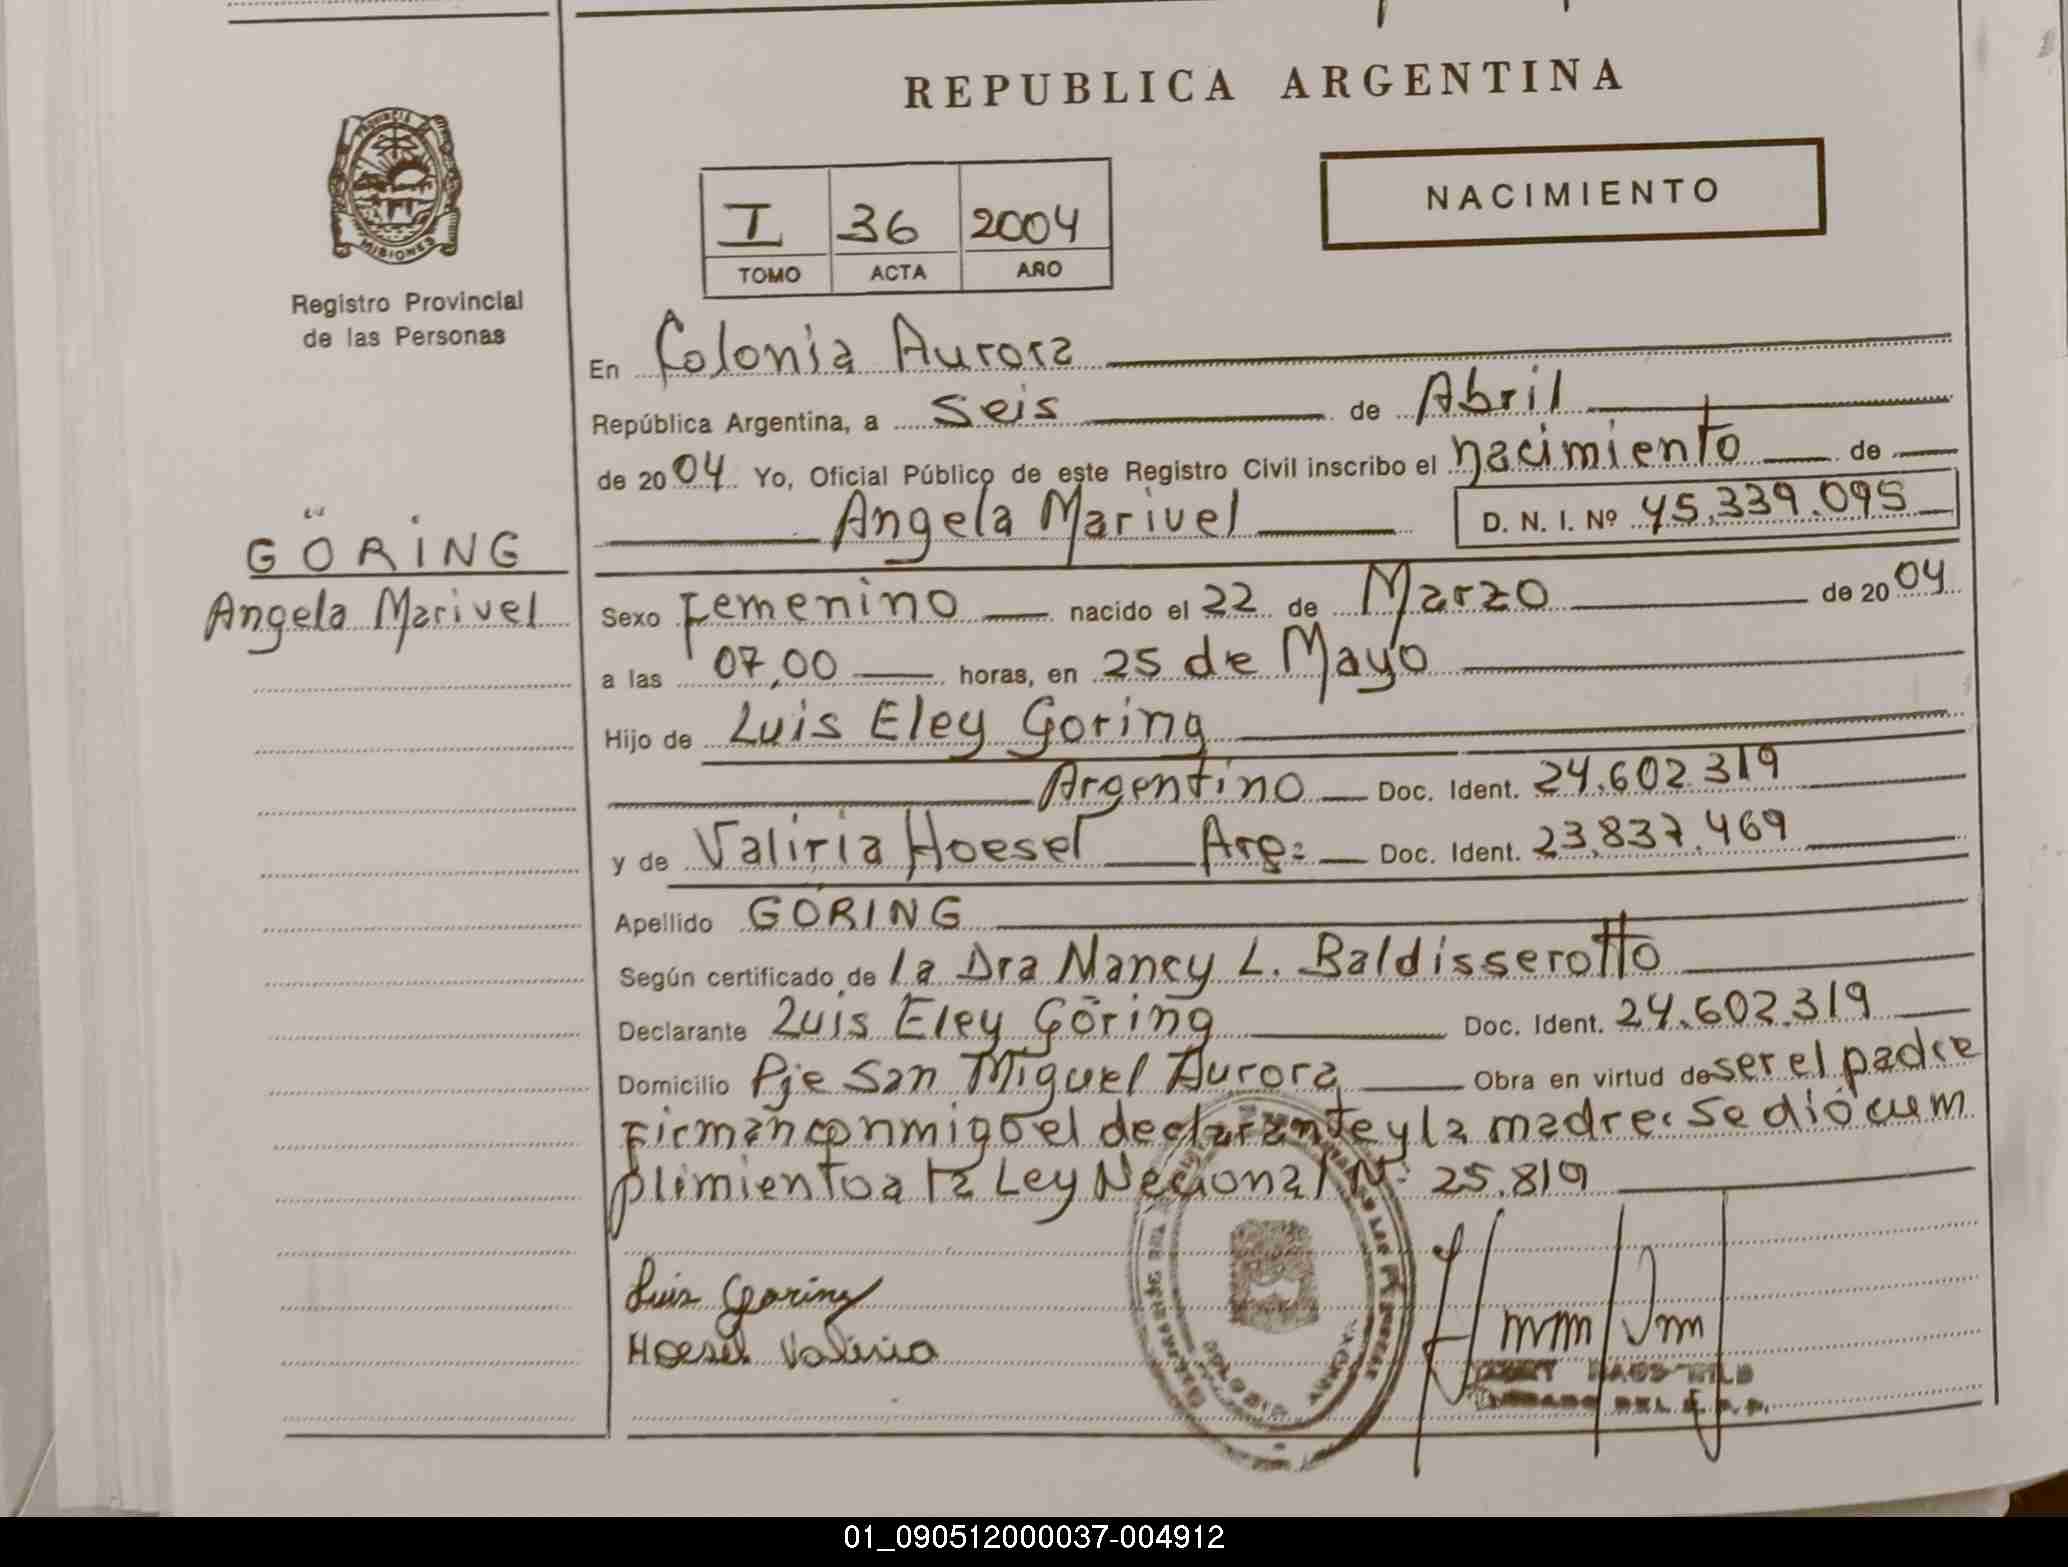 REPUBLICA ARGENTINA
PROVINCIA DE
MISIONES
Registro Provincial
de las Personas
NACIMIENTO
I 36 2004
TOMO ACTA AÑO
En Colonia Aurora
República Argentina, a seis de Abril
de 2004 Yo, Oficial Público de este Registro Civil inscribo el nacimiento de
Angela Marivel D. N. I. Nº 45.339.095
GÖRING
Angela Marivel
Sexo Femenino nacido el 22 de Marzo de 2004
a las 07,00 horas, en 25 de Mayo
Hijo de Luis Eley Goring
Argentino Doc. Ident. 24.602.319
y de Valiria Hoesel Arg: Doc. Ident. 23.837.469
Apellido GÖRING
Según certificado de la Dra Nancy L. Baldisserotto
Declarante Luis Eley Göring Doc. Ident. 24.602.319
Domicilio Pje San Miguel Aurora Obra en virtud de ser el padre
Firman conmigo el declarante y la madre. Se dió cum
plimiento a la Ley Nacional Nº 25.819
Luis Goring
Hoesel Valiria
01_090512000037-004912